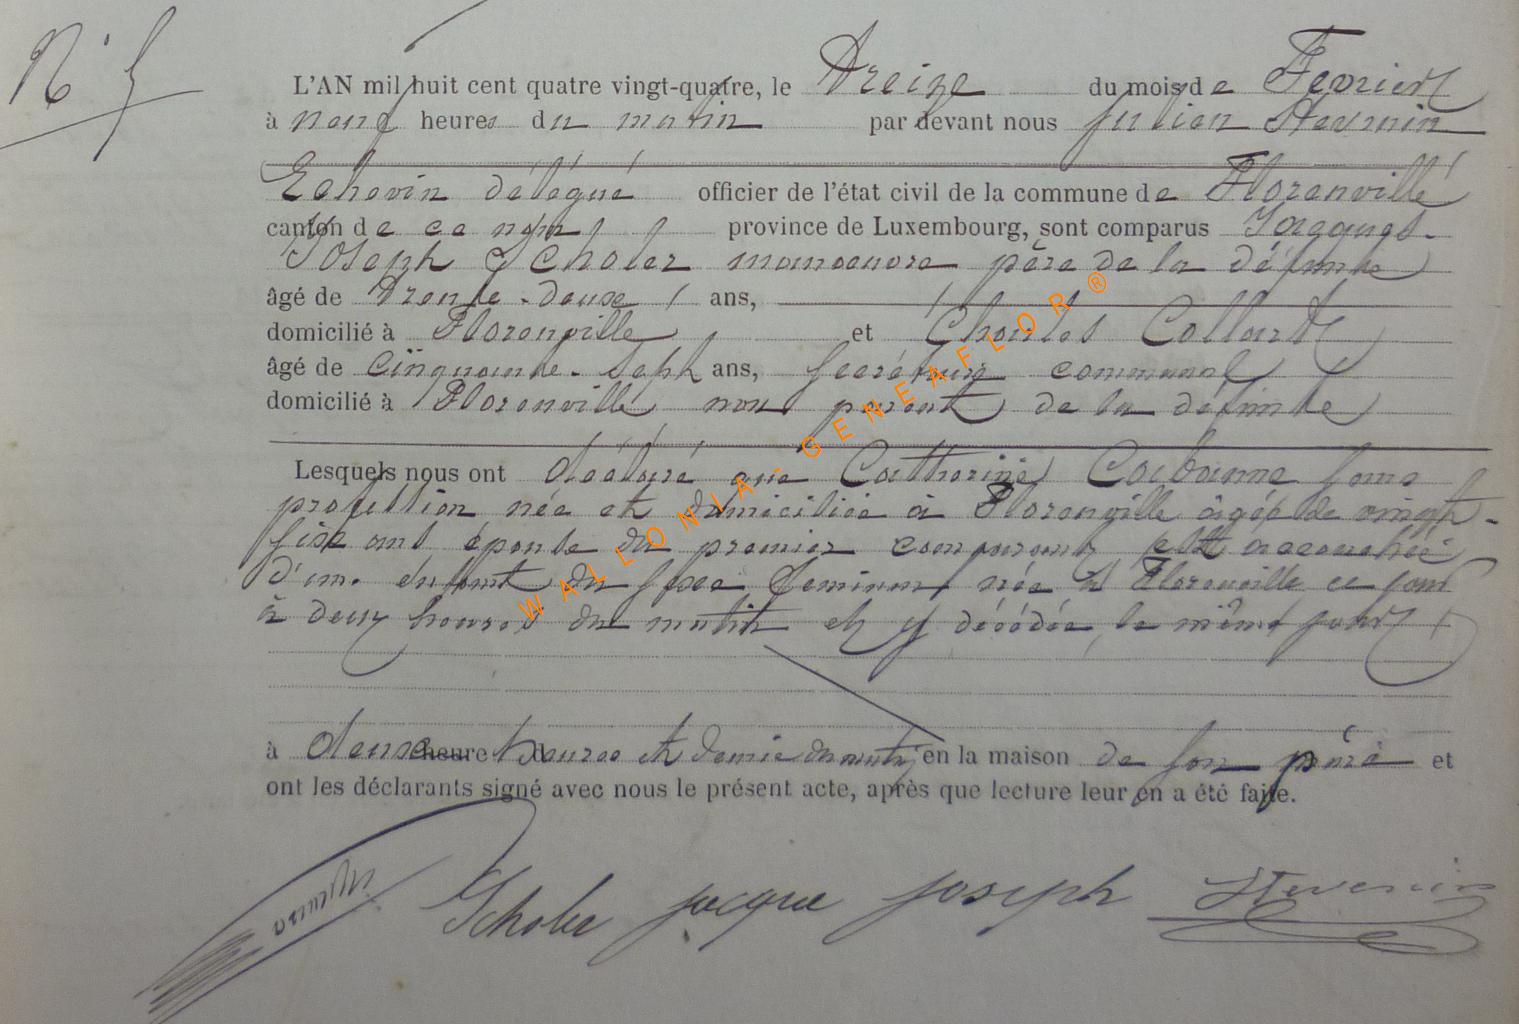 N° 5
L'AN mil huit cent quatre vingt-quatre, le Treize du mois de Fevrier
à neuf heures du matin par devant nous Julien Stevenin
Echevin délégué officier de l'état civil de la commune de Florenville
canton de ce nom province de Luxembourg, sont comparus Jacques-
Joseph Schober manoeuvre père de la défunte
âgé de trente-deux ans,
domicilié à Florenville et Charles Collard
âgé de cinquante-sept ans, secrétaire communal
domicilié à Florenville non parent de la défunte
Lesquels nous ont déclaré que Catherine sans
profession née et domiciliée à Florenville âgée de vingt-
six ans épouse du premier comparant est accouchée
d'un enfant du sexe feminin née à Florenville ce jour
à deux heures du matin et y décédée le même jour
à deux heure heures et demie du matin en la maison de son père et
ont les déclarants signé avec nous le présent acte, après que lecture leur en a été faite.
Schober jacque joseph Stevenin
WALLONIA - GENEAFLOR ®